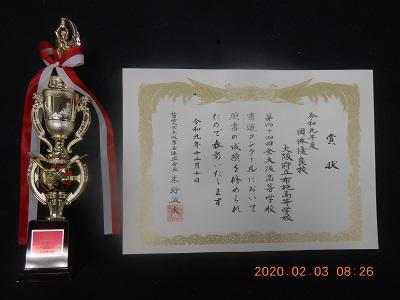 賞状
令和元年度
団体優良校
大阪府立布施高等学校
第四十四回全大阪高等学校
書道コンクールにおいて
頭書の成績を修められ
たので表彰いたします
令和元年十二月十日
2020.02.03 08:26